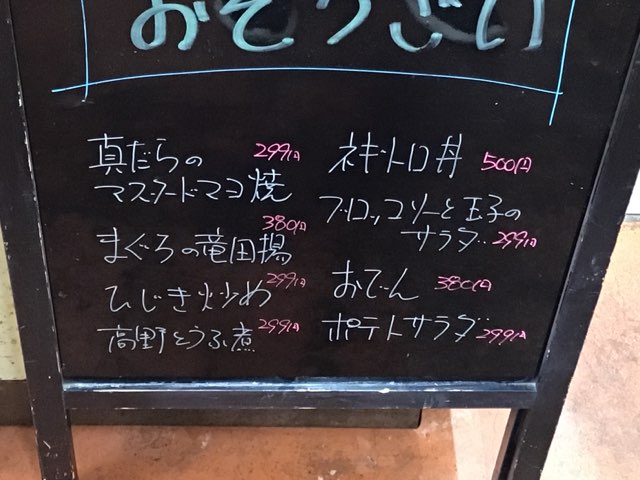 おそうざい
真だらの 299円
マスタードマヨ焼
まぐろの竜田揚 380円
ひじき炒め 299円
高野とうふ煮 299円
ネギトロ丼 500円
ブロッコリーと玉子の
サラダ 299円
おでん 380円
ポテトサラダ 299円